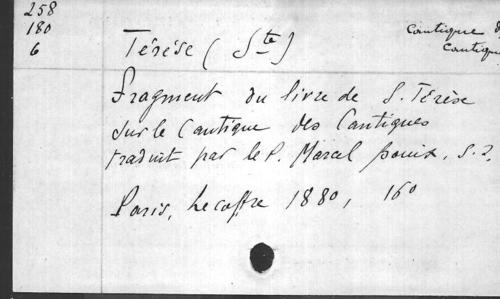 258
180
6
Cantique d
Cantique
Térèse (Ste)
Fragment du livre de S. Térèse
sur le Cantique des Cantiques
traduit par le P. Marcel Bouix, S.J.
Paris, Lecoffre 1880, 16°